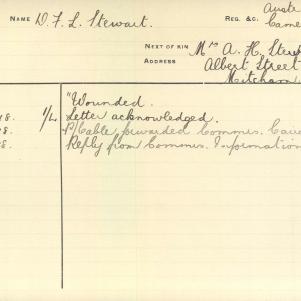 Name D. F. L. Stewart.
Reg. &c.
Next of Kin Mrs A. H.
Address Albert Street
Mitcham
"Wounded.
8. 1/L Letter acknowledged.
8. P/Cable forwarded Commrs.
8. Reply from Commrs. Information